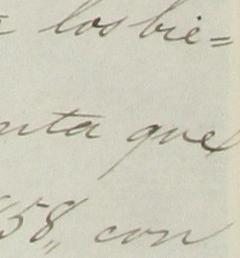 los bie=
nta que
58,, con